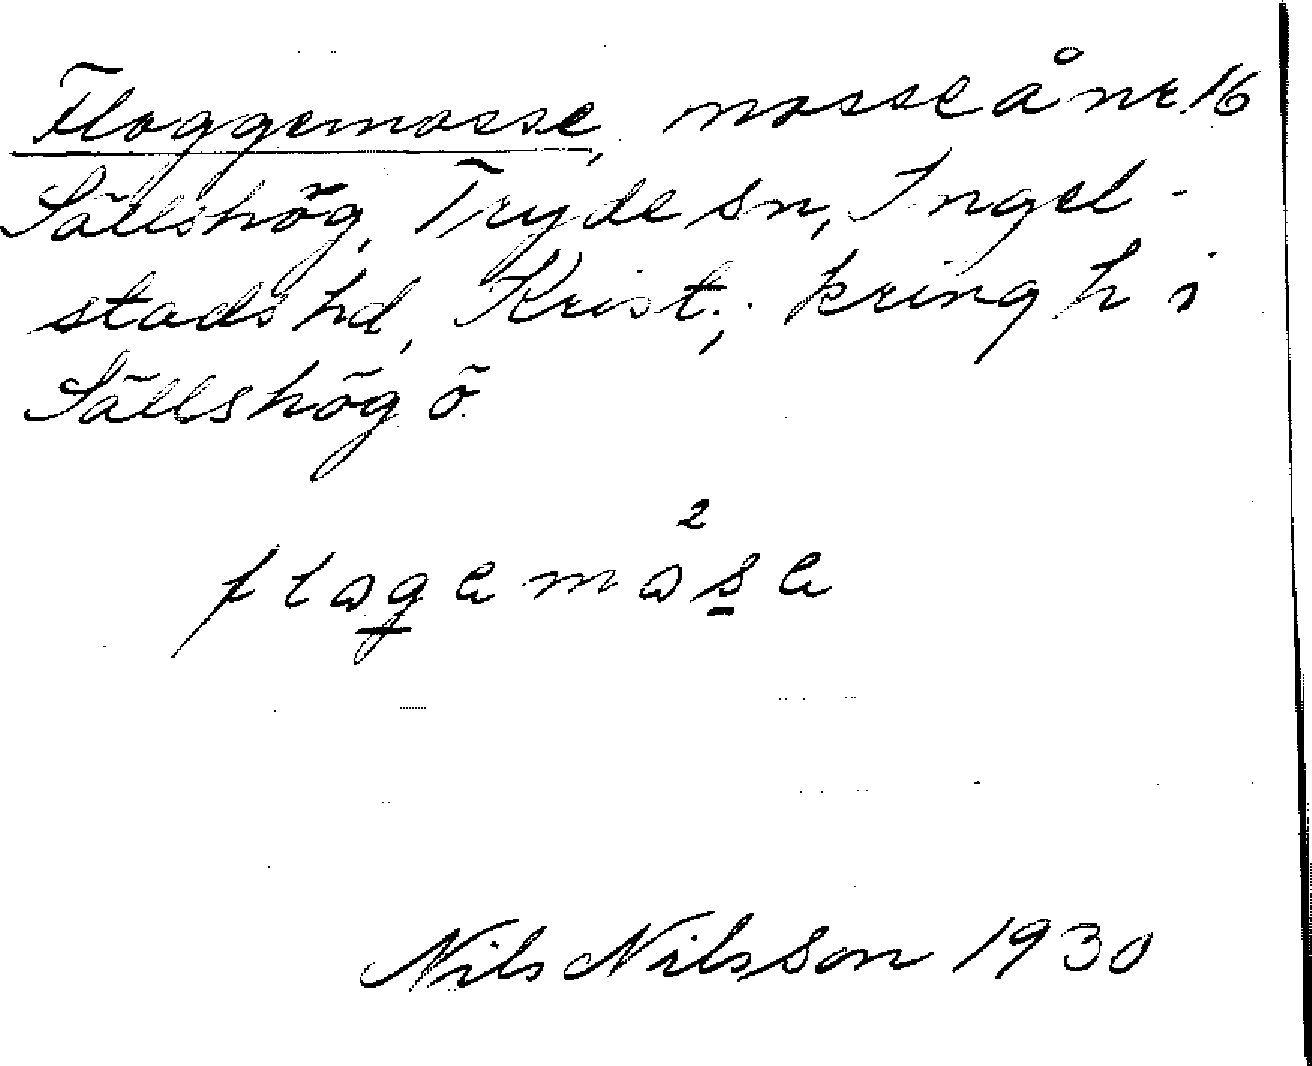 Floggemosse, mosse å nr 16
Sällshög, Tryde sn, Ingel-
stads hd, Krist.; kring h i
Sällshög ö.
flogemo²se
Nils Nilsson 1930